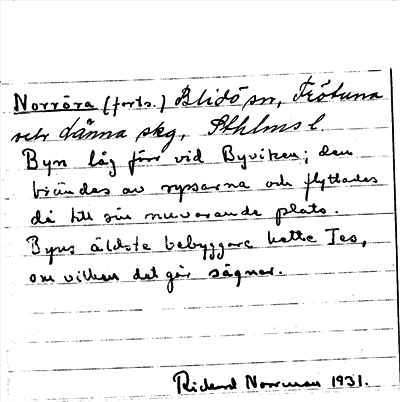 Norröra (forts.) Blidö sn, Frötuna
och Länna skg, Sthlms l.
Byn låg förr vid Byviken; den
brändes av ryssarna och flyttades
då till sin nuvarande plats.
Byns äldste bebyggare hette Tes,
om vilken det går sägner.
Rickard Norrman 1931.